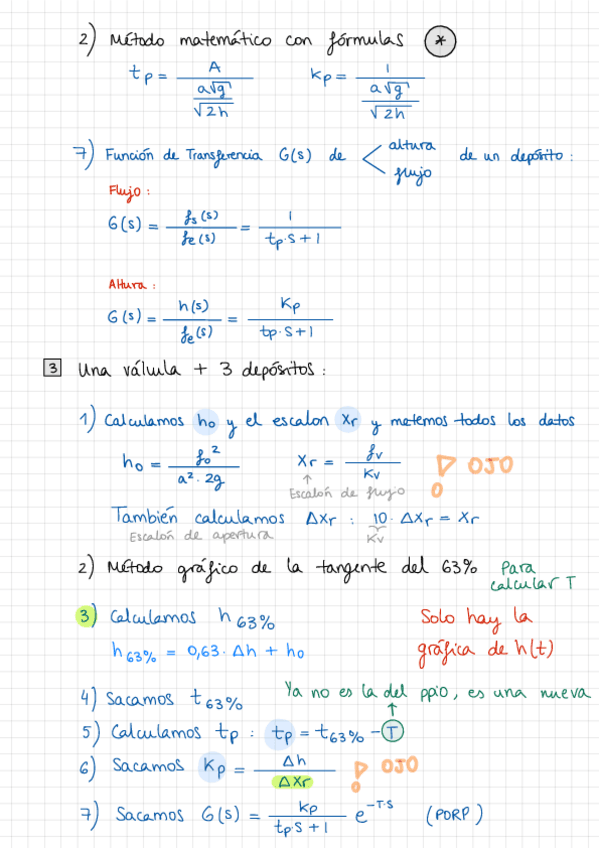 2) Método matemático con fórmulas *
tp = A / (a√g / √2h)   Kp = 1 / (a√g / √2h)
7) Función de Transferencia G(s) de < altura flujo de un depósito:
Flujo:
G(s) = fs(s) / fe(s) = 1 / (tp·s+1)
Altura:
G(s) = h(s) / fe(s) = Kp / (tp·s+1)
3 Una válvula + 3 depósitos:
1) Calculamos ho y el escalon Xr y metemos todos los datos
ho = fo² / (a²·2g)   Xr = fv / Kv   ! OJO
↑
Escalón de flujo
También calculamos ΔXr : 10·ΔXr = Xr
Escalón de apertura   Kv
2) Método gráfico de la tangente del 63% Para calcular T
3) Calculamos h63%   Solo hay la
h63% = 0,63·Δh + ho   gráfica de h(t)
4) Sacamos t63%   Ya no es la del ppio, es una nueva
↑
5) Calculamos tp : tp = t63% - T
6) Sacamos Kp = Δh / ΔXr   ! OJO
7) Sacamos G(s) = Kp / (tp·s+1) e^-T·s (PORP)